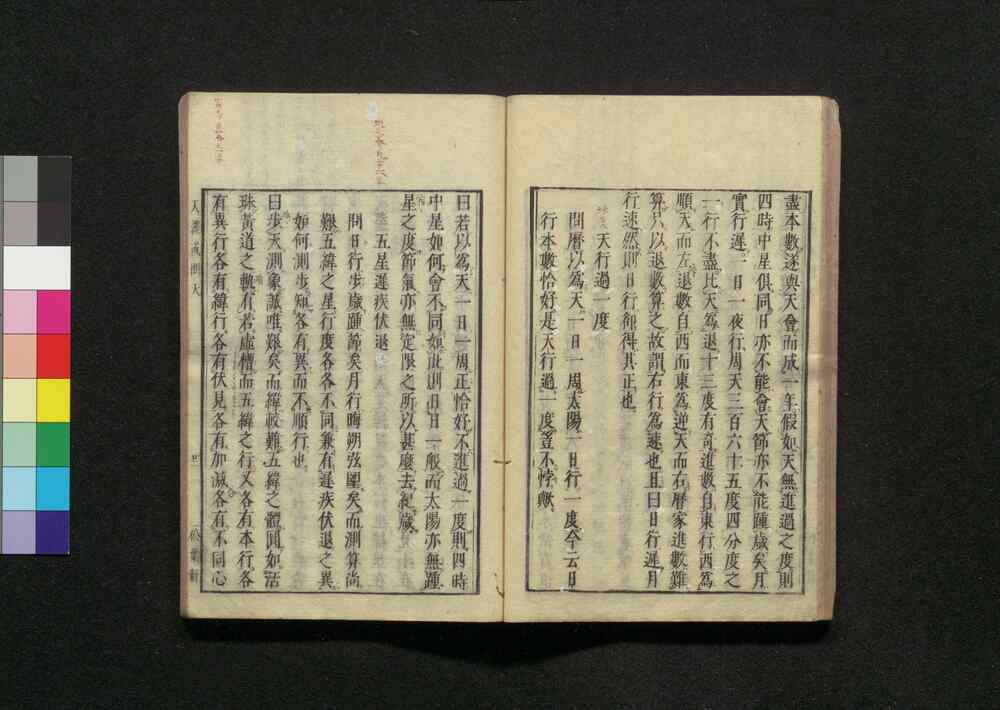 盡本數遂與天會而成一年假如天無進過之度則
四時中星俱同日亦不能會天節亦不能踵歲矣月
實行遲一日一夜行周天三百六十五度四分度之
一行不盡比天為退十三度有奇進數自東行西為
順天而左退數自西而東為逆天而右曆家進數難
算只以退數算之故謂右行為速也且曰日行遲月
行速然則日行卻得其正也
天行過一度
問曆以為天一日一周太陽一日行一度今云日
行本數恰好是天行過一度豈不悖歟
曰若以為天一日一周正恰好不進過一度則四時
中星如何會不同如此則日日一般而太陽亦無踵
星之度節氣亦無定限之所以甚麼去紀歲
五星遲疾伏退
問日行步歲踵節矣月行晦朔弦國矣而測算尚
艱五緯之星行度各各不同兼有遲疾伏退之異
如何測步知各有異而不順行也
曰步天測象誠唯艱矣而緯最難五緯之體圓如活
珠黃道之軌有若虛槽而五緯之行又各有本行各
有異行各有緯行各有伏見各有加減各有不同心